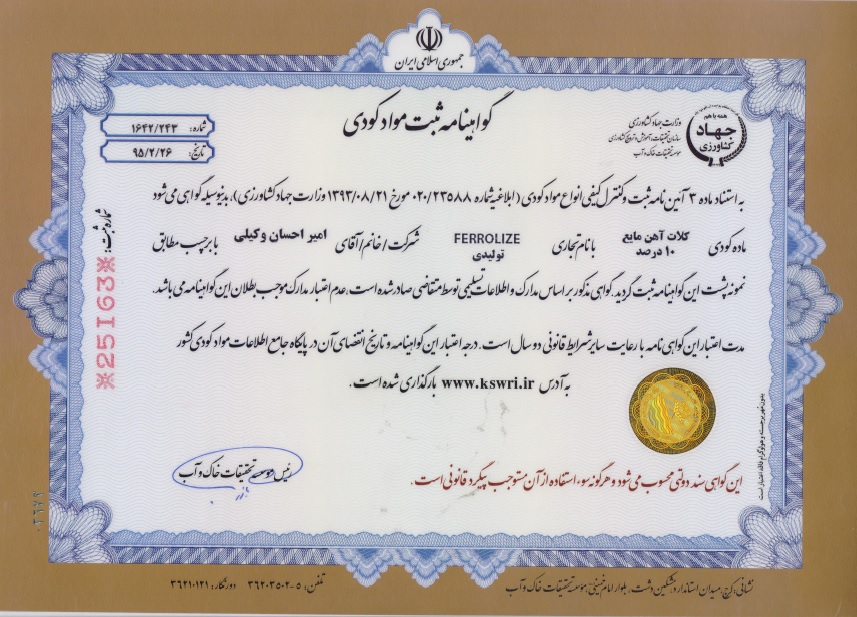 جمهوری اسلامی ایران
گواهینامه ثبت مواد کودی
همه با هم
جهاد
کشاورزی
وزارت جهاد کشاورزی
سازمان تحقیقات، آموزش و ترویج کشاورزی
موسسه تحقیقات خاک و آب
شماره: ۱۶۴۲/۲۴۳
تاریخ: ۹۵/۲/۲۶
شماره ثبت:
※25163※
به استناد ماده ۳ آئین نامه ثبت و کنترل کیفی انواع مواد کودی (ابلاغیه شماره ۰۲۰/۲۳۵۸۸ مورخ ۱۳۹۳/۰۸/۲۱ وزارت جهاد کشاورزی)، بدینوسیله گواهی می شود
ماده کودی کلات آهن مایع ۱۰ درصد با نام تجاری FERROLIZE تولیدی شرکت/خانم/آقای امیر احسان وکیلی با برچسب مطابق
نمونه پشت این گواهینامه ثبت گردید. گواهی مذکور بر اساس مدارک و اطلاعات تسلیمی توسط متقاضی صادر شده است، عدم اعتبار مدارک موجب بطلان این گواهینامه می باشد.
مدت اعتبار این گواهی نامه با رعایت سایر شرایط قانونی دو سال است. درجه اعتبار این گواهینامه و تاریخ انقضای آن در پایگاه جامع اطلاعات مواد کودی کشور
به آدرس www.kswri.ir بارگذاری شده است.
بدون مهر برجسته و هولوگرام فاقد اعتبار است
رئیس موسسه تحقیقات خاک و آب
این گواهی سند دولتی محسوب می شود و هرگونه سوء استفاده از آن مستوجب پیگرد قانونی است.
۰۳۶۷۹
نشانی: کرج، میدان استاندارد، مشکین دشت، بلوار امام خمینی، موسسه تحقیقات خاک و آب
تلفن: ۵-۳۶۲۰۳۵۰۲ دورنگار: ۳۶۲۱۰۱۲۱